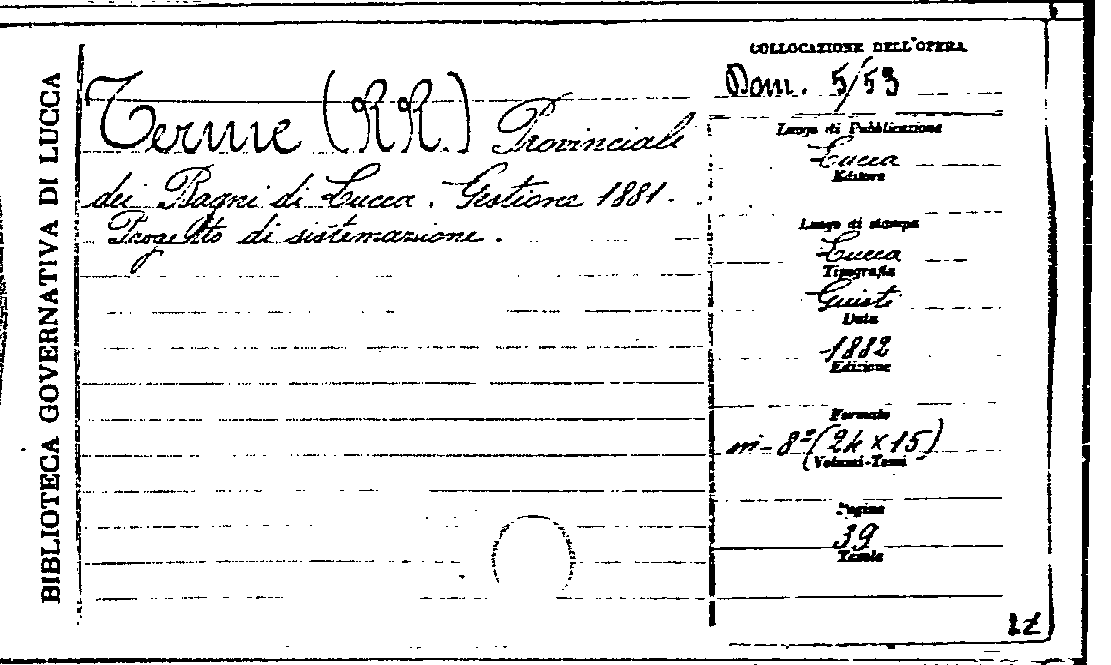 BIBLIOTECA GOVERNATIVA DI LUCCA
Terme (RR.) Provinciali
dei Bagni di Lucca. Gestione 1881.
Progetto di sistemazione.
COLLOCAZIONE DELL'OPERA
Dom. 5/53
Luogo di Pubblicazione
Lucca
Editore
Luogo di stampa
Lucca
Tipografia
Giusti
Data
1882
Edizione
Formato
in-8º (24 x 15)
(Volumi-Tomi
Pagine
39
Tavole